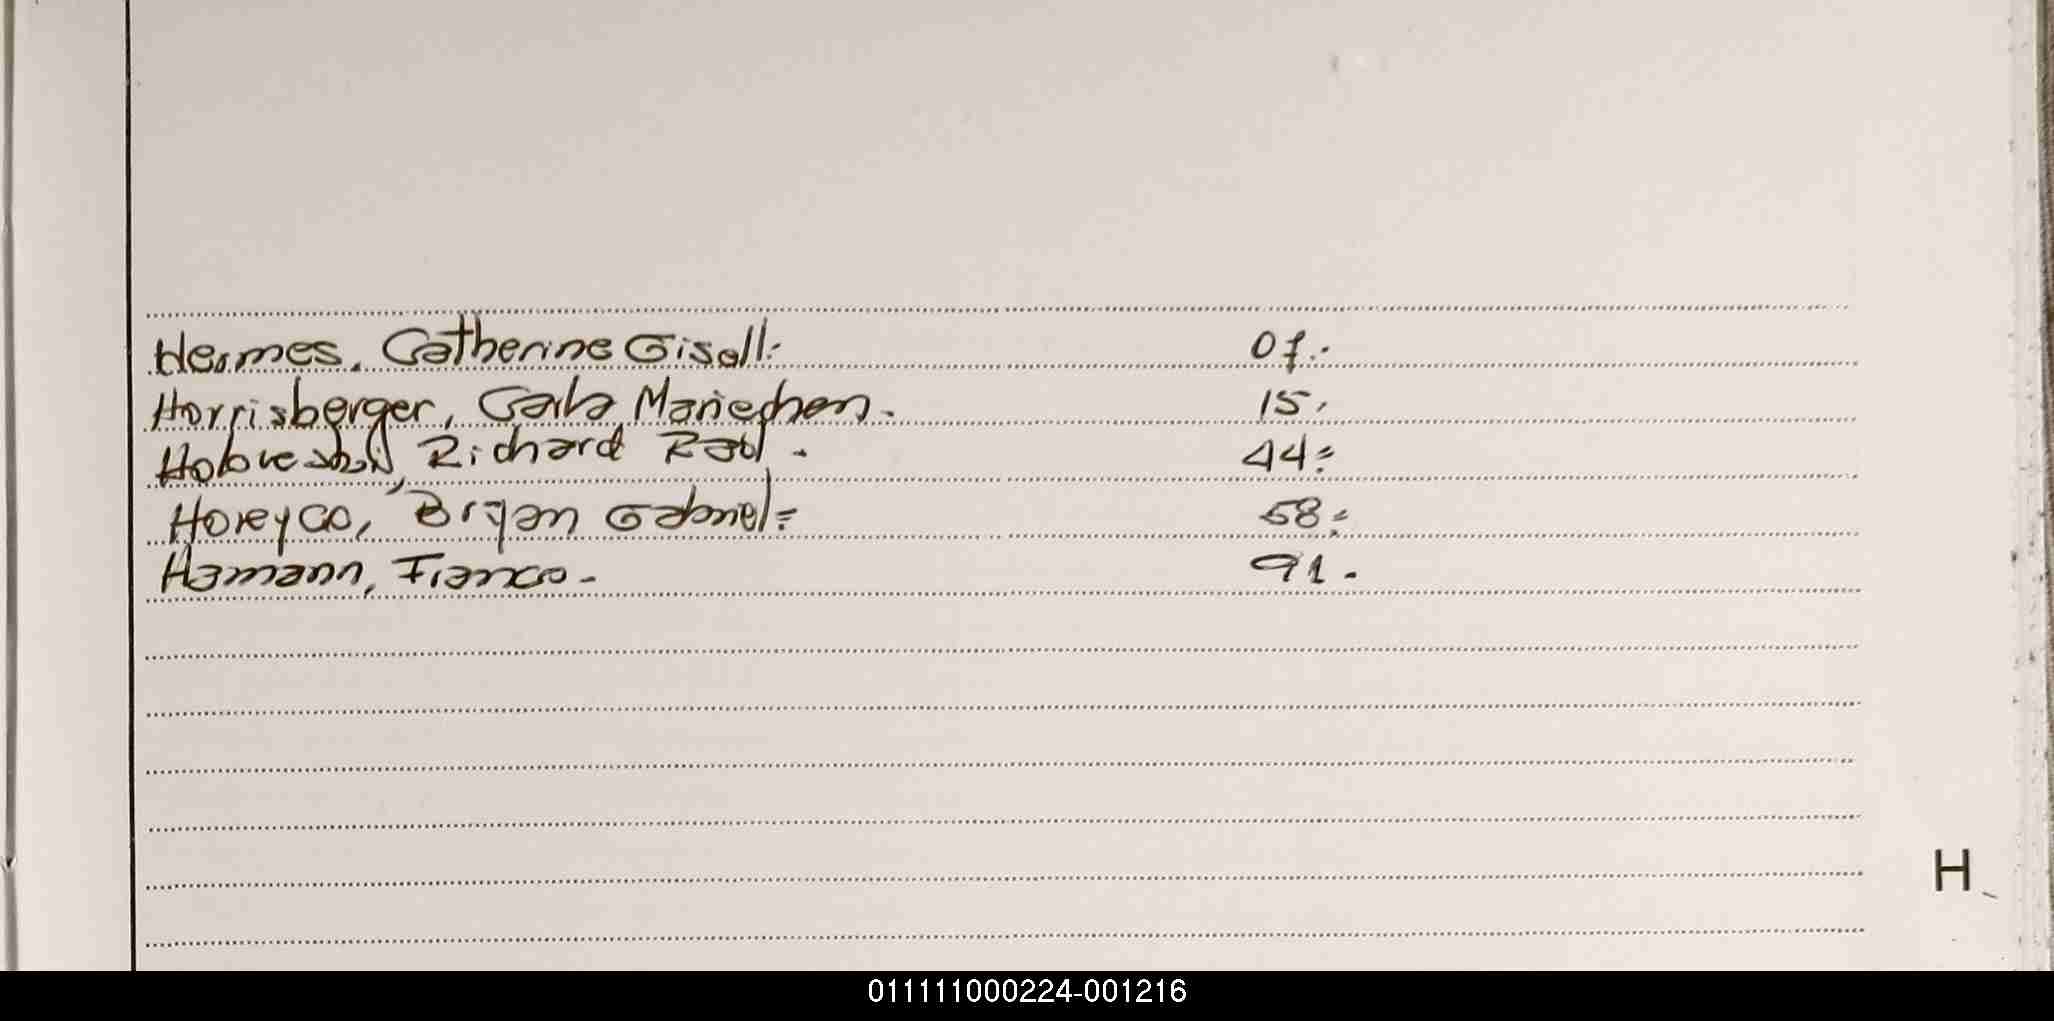 Hermes, Catherine Gisell:- 07.-
Horrisberger, Carla Mariechen.- 15.
Richard Raul.- 44:=
Horeyco, Bryan Gabriel:= 58:=
Hamann, Franco.- 91.-
H
011111000224-001216